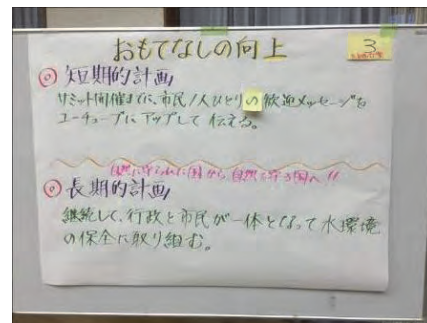 おもてなしの向上
3
◎ 短期的計画
サミット開催までに、市民1人ひとりの歓迎メッセージを
ユーチューブにアップして伝える。
自然に守られた国から自然を守る国へ!!
◎ 長期的計画
継続して、行政と市民が一体となって水環境
の保全に取り組む。